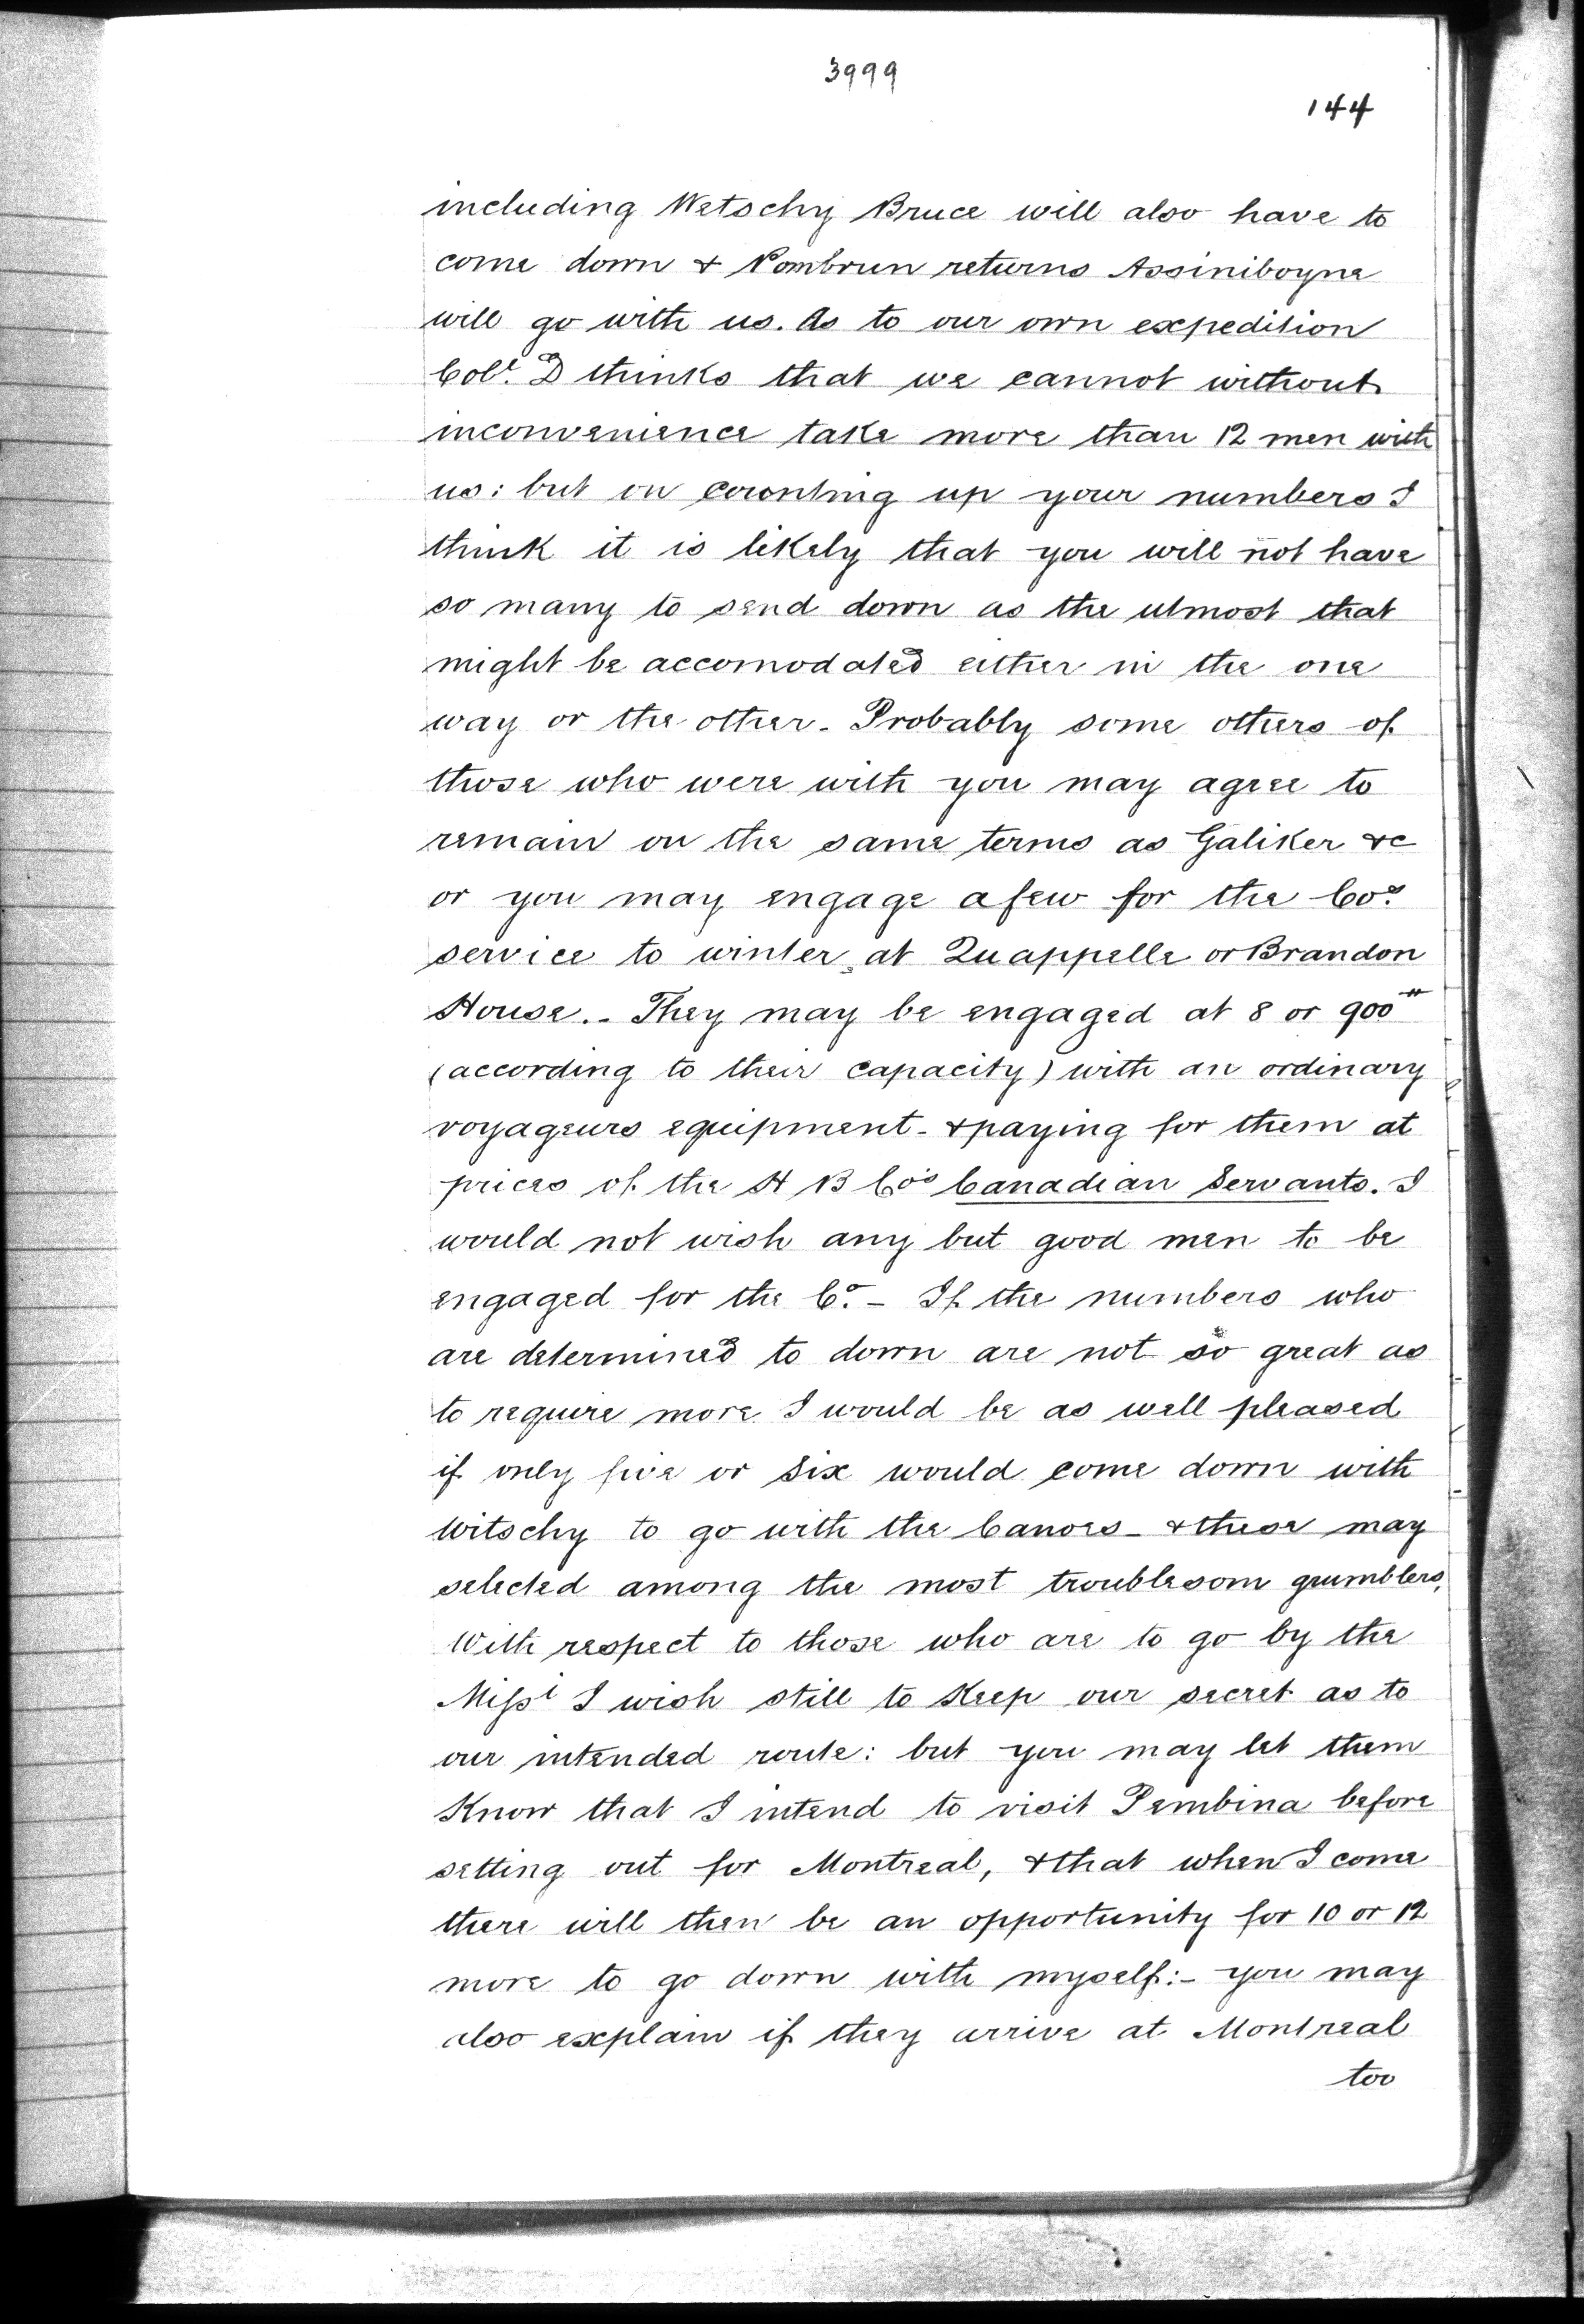 3999
144
including Watschy Bruce will also have to
come down & Pombrun returns Assiniboyne
will go with us. As to our own expedition
Colt. D thinks that we cannot without
inconvenience take more than 12 men with
us: but on counting up your numbers I
think it is likely that you will not have
so many to send down as the utmost that
might be accomodated either in the one
way or the other - Probably some others of
those who were with you may agree to
remain on the same terms as Galiker &c
or you may engage a few for the Cos
service to winter at Quappelle or Brandon
House. - They may be engaged at 8 or 900tt
(according to their capacity) with an ordinary
voyageurs equipment - & paying for them at
prices of the H B Co's Canadian Servants. I
would not wish any but good men to be
engaged for the Co. - If the numbers who
are determined to down are not so great as
to require more I would be as well pleased
if only five or six would come down with
Witschy to go with the Canoes - & these may
selected among the most troublesom grumblers,
With respect to those who are to go by the
Missi I wish still to keep our secret as to
our intended route: but you may let them
Know that I intend to visit Pembina before
setting out for Montreal, & that when I come
there will then be an opportunity for 10 or 12
more to go down with myself: - you may
also explain if they arrive at Montreal
too